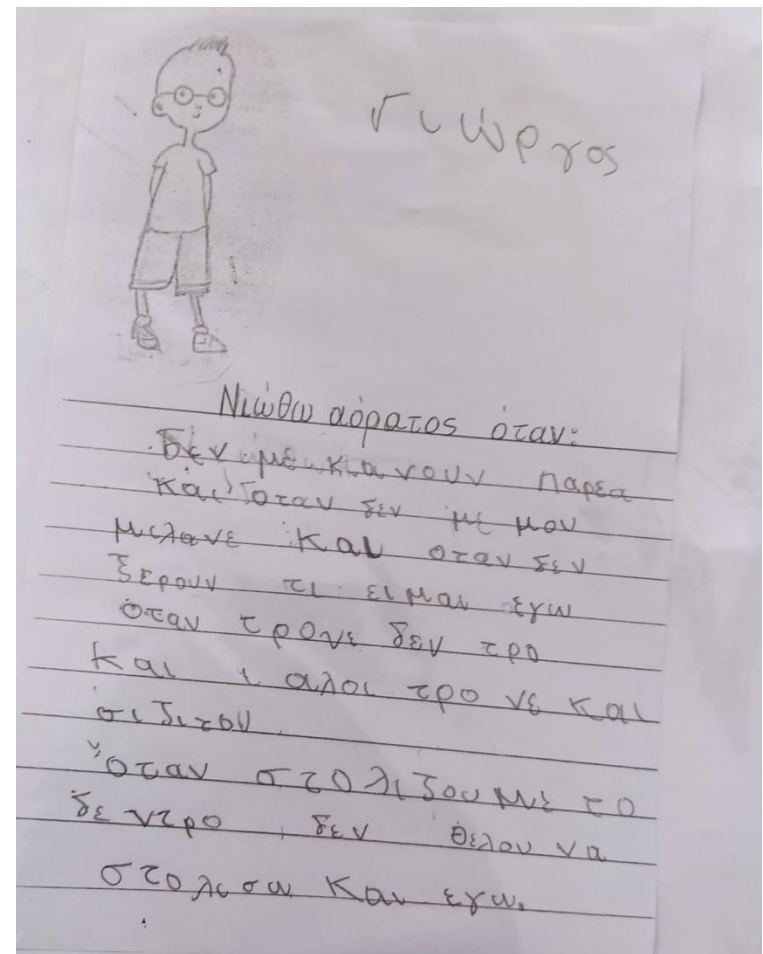 Γιώργος
Νιώθω αόρατος όταν:
Δεν με κιανουν παρεα
και όταν δεν με μου
μιλανε και οταν δεν
ξερουν τι ειμαι εγω
όταν τρονε δεν τρο
και ι αλοι τρο νε και
Όταν στολιζουμε το
δε ντρο, δεν θελου να
στολισω και εγω.